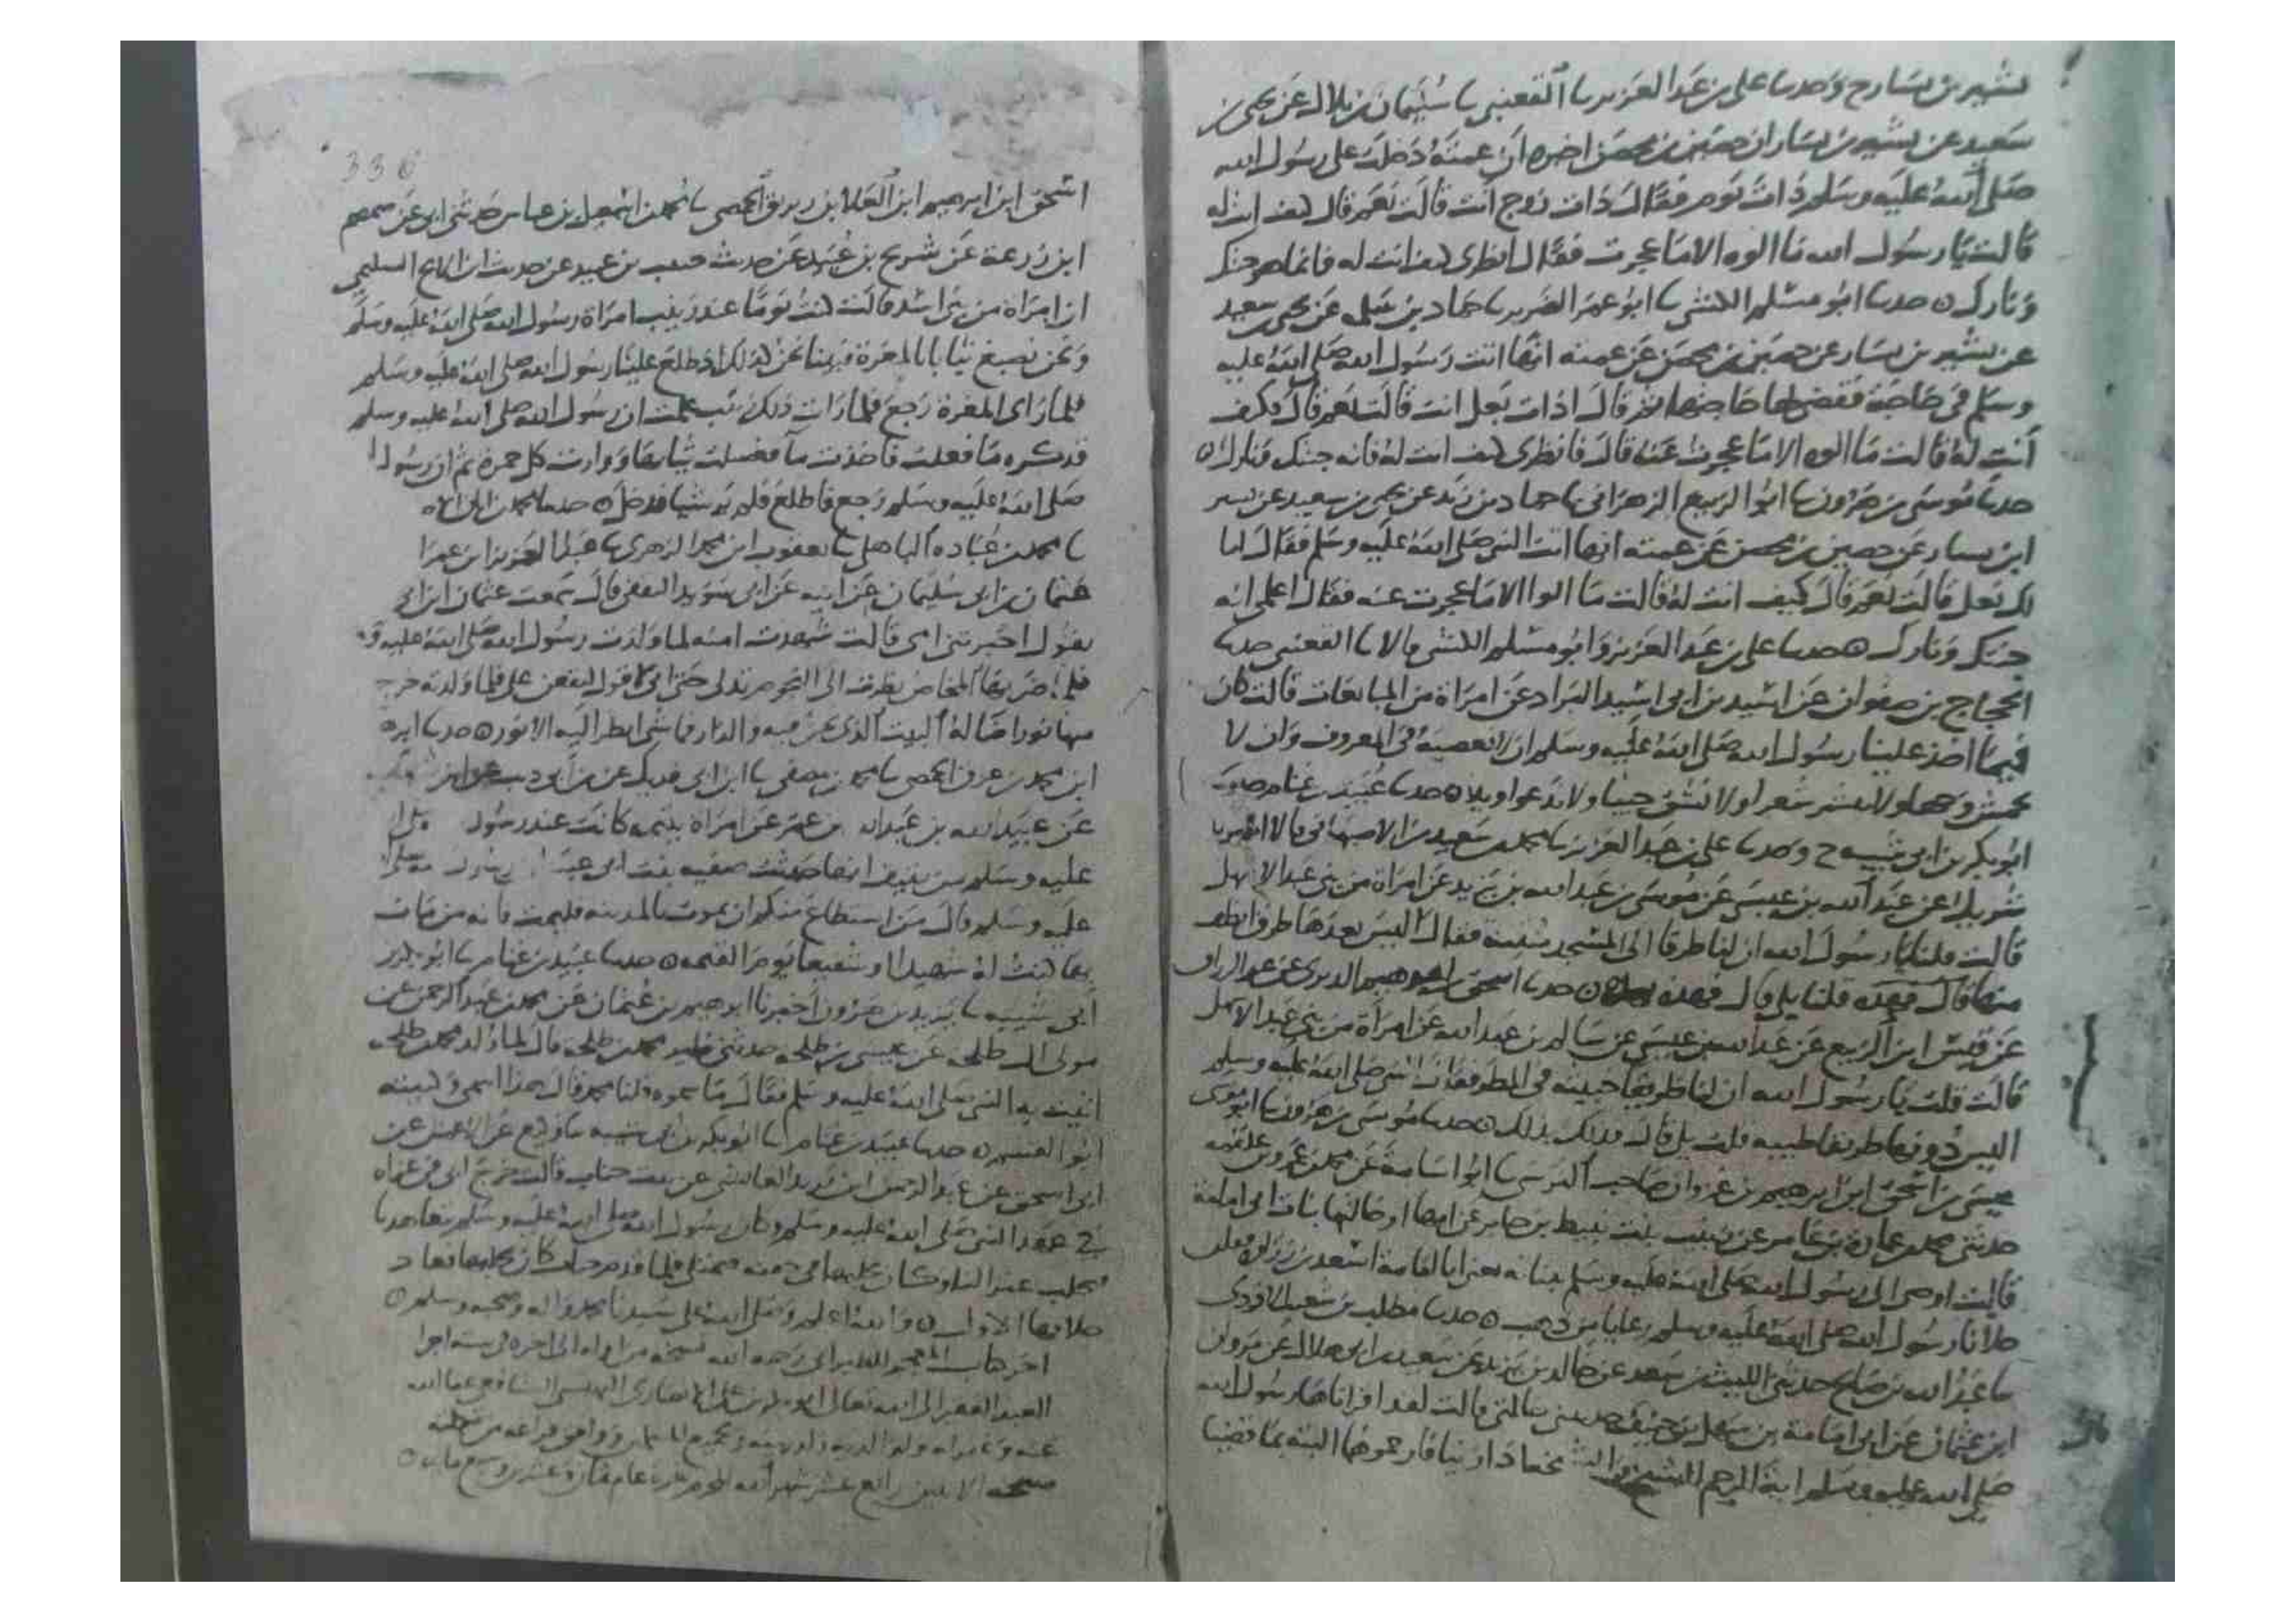 بشير بن يسار ح وحدثنا علي بن عبد العزيز ثنا القعنبي ثنا سليمان بن بلال عن يحيى بن
سعيد عن بشير بن يسار ان حصين بن محصن اخبره ان عمته دخلت على رسول الله
صلى الله عليه وسلم ذات يوم فقال ذات زوج انت قالت نعم قال كيف انت له
قالت يا رسول الله ما الوه الا ما عجزت فقال انظري كيف انت له فانما هو جنتك
ونارك حدثنا ابو مسلم الكشي ثنا ابو عمر الضرير ثنا حماد بن سلمه عن يحيى بن سعيد
عن بشير بن يسار عن حصين بن محصن عن عمته انها اتت رسول الله صلى الله عليه
وسلم في حاجة فقضى لها حاجتها ثم قال اذات بعل انت قالت نعم قال فكيف
انت له قالت ما الوه الا ما عجزت عنه قال فانظري كيف انت له فانه جنتك ونارك
حدثنا موسى بن هرون ثنا ابو الربيع الزهراني ثنا حماد بن زيد عن يحيى بن سعيد عن بشير
ابن يسار عن حصين بن محصن عن عمته انها اتت النبي صلى الله عليه وسلم فقال اما
لك بعل قالت نعم قال كيف انت له قالت ما الوا الا ما عجزت عنه فقال اعلمي انه
جنتك ونارك حدثنا علي بن عبد العزيز وابو مسلم الكشي قالا ثنا القعنبي حدثنا
الحجاج بن صفوان عن اسيد بن ابي اسيد البراد عن امراة من المبايعات قالت كان
فيما اخذ علينا رسول الله صلى الله عليه وسلم ان لا نعصيه في المعروف وان لا
نخمش وجها ولا ننشر شعرا ولا نشق جيبا ولا ندعوا ويلا حدثنا عبيد بن غنام حدثنا
ابو بكر بن ابي شيبه ح وحدثنا علي بن عبد العزيز ثنا محمد بن سعيد بن الاصبهاني قالا انبانا
شريك عن عبد الله بن عيسى عن موسى بن عبد الله بن يزيد عن امراة من بني عبد الاشهل
قالت قلنا يا رسول الله ان لنا طرقا الى المسجد منتنة فقال اليس بعدها طرق انظف
منها قال فهذه قلنا بلى قال فهذه بهذه حدثنا اسحق بن ابرهيم الدبري عن عبد الرزاق
عن قيس ابن الربيع عن عبد الله بن عيسى عن سالم بن عبد الله عن امراة من بني عبد الاشهل
قالت قلت يا رسول الله ان لنا طريقا خبيثه في المطر فقال النبي صلى الله عليه وسلم
اليس دونها طريقا طيبه قلت بلى قال فذلك بذلك حدثنا موسى بن هرون ثنا ابو موسى
عيسى بن اسحق ابن ابرهيم بن غزوان صاحب النرسي ثنا ابو اسامة عن محمد بن عمرو بن علقمه
حدثني محمد بن عمارة بن عامر عن زينب بنت نبيط بن جابر عن امها او خالتها بنات ابي امامة
قالت اوصى الى رسول الله صلى الله عليه وسلم بناته يعني ابا امامة اسعد بن زراره
حلانا رسول الله صلى الله عليه وسلم رعاثا من ذهب حدثنا مطلب بن شعيب الازدي
ثنا عبد الله بن صالح حدثني الليث بن سعد عن خالد بن يزيد عن سعيد بن ابي هلال عن مروان
ابن عثمان عن ابي امامة بن سهل بن حنيف حدثتني خالتي قالت لقد اقراناها رسول الله
صلى الله عليه وسلم اية الرجم الشيخ والشيخة اذا زنيا فارجموهما البتة بما قضيا
330
اسحق ابن ابرهيم ابن العلا بن زبريق الحمصي ثنا محمد بن اسمعيل بن عياش حدثني ابي عن ضمضم
ابن زرعة عن شريح بن عبيد عن حديث حبيب بن عبيد عن حريث ابن الابح السليحي
ان امراة من بني اسد قالت كنت يوما عند زينب امراة رسول الله صلى الله عليه وسلم
ونحن نصبغ ثيابا بالمغرة فبينا نحن كذلك اذ طلع علينا رسول الله صلى الله عليه وسلم
فلما راى المغرة رجع فلما رات ذلك زينب علمت ان رسول الله صلى الله عليه وسلم
قد كره ما فعلت فاخذت ماً فغسلت ثيابها ووارت كل حمرة ثم ان رسول ا
صلى الله عليه وسلم رجع فاطلع فلم ير شيا فدخل حدثنا
ثنا محمد بن عباده الباهلي ثنا يعقوب ابن محمد الزهري ثنا عبد العزيز ابن عمرا
عثمان بن ابي سليمان عن ابيه عن ابي سويد الثقفي قال سمعت عثمان ابن ابي
يقول اخبرتني امي قالت شهدت امنه لما ولدت رسول الله صلى الله عليه و
فلما ضربها المخاض نظرت الى النجوم تدلى حتى اني لاقول ليقعن علي فلما ولدته خرج
منها نورا ضا له البيت الذي نحن فيه والدار فما شي انظر اليه الا نور حدثنا ابره
ابن محمد بن عرق الحمصي ثنا محمد بن مصفى ثنا ابن ابي فديك عن بن ابي ذيب عن ابن
عن عبيد الله بن عبد الله بن عمر عن امراة يتيمه كانت عند رسول
عليه وسلم من ثقيف انها حدثت صفيه بنت ابي عبيد ان رسول
عليه وسلم قال من استطاع منكم ان يموت بالمدينه فليمت فانه من مات
بها كنت له شهيدا او شفيعا يوم القيمه حدثنا عبيد بن غنام ثنا ابو بكر
ابي شيبه ثنا يزيد بن هرون اخبرنا ابرهيم بن عثمان عن محمد بن عبد الرحمن عن
مولى ال طلحه عن عيسى بن طلحه حدثتني ظير محمد بن طلحه قال لما ولد محمد بن طلحه
اتيت به النبي صلى الله عليه وسلم فقال ما سموه قلنا محمد قال هذا اسمي وكنيته
ابو القسم حدثنا عبيد بن غنام ثنا ابو بكر بن ابي شيبه ثنا وكيع عن الاعمش عن
ابي اسحق عن عبد الرحمن ابن زيد الفايشي عن بنت خباب قالت خرج ابي في غزاه
في عهد النبي صلى الله عليه وسلم وكان رسول الله صلى الله عليه وسلم يتعاهدنا
فيحلب عنزا لنا وكان يحلبها في جفنه فتمتلي فلما قدم خباب كان يحلبها فعاد
حلابها الاول والله اعلم وصلى الله على سيدنا محمد واله وصحبه وسلم
اخر كتاب المعجم للطبراني رحمه الله نسخه من اوله الى اخره في ستة اجزا
العبد الفقير الى الله تعالى الانصاري الشافعي عفا الله
عنه وغفر له ولوالديه ولجميع المسلمين ووافق فراغه من
الاثنين رابع عشر شهر الله المحرم